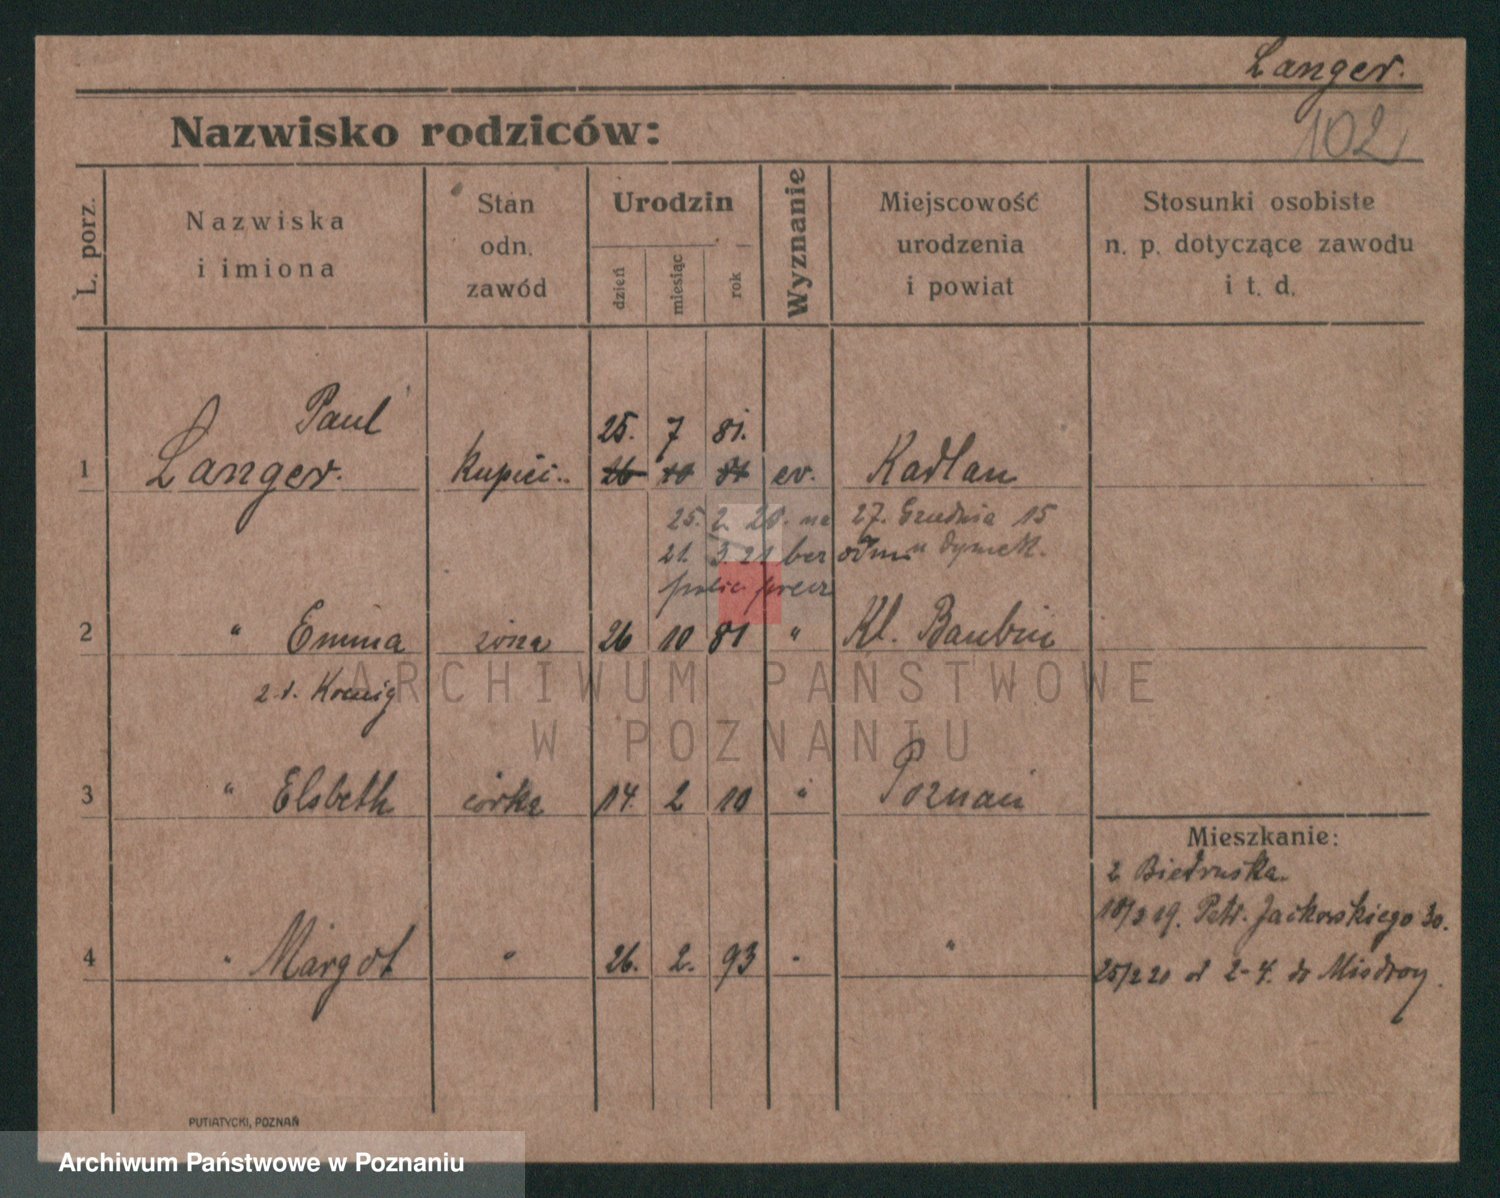 Langer.
102
Nazwisko rodziców:
L. porz.
Nazwiska
i imiona
Stan
odn.
zawód
Urodzin
dzień
miesiąc
rok
Wyznanie
Miejscowość
urodzenia
i powiat
Stosunki osobiste
n. p. dotyczące zawodu
i t. d.
Paul 25. 7 81.
1 Langer. kupiec 26 10 81 ev. Kadlau
25. 2. 20. na 27. Grudnia 15
21. 3 21 bez odm.
2 " Emma żona 26 10 81 " Kl. Baubin
z d. Koenig
ARCHIWUM PAŃSTWOWE
W POZNANIU
3 " Elsbeth córka 14. 2 10 " Poznań
Mieszkanie:
z Biedruska.
18/3 19. Patr. Jackowskiego 30.
4 " Margot " 26. 2. 93 " "
25/2 20 od 2-4. do Misdroy.
PUTIATYCKI, POZNAŃ
Archiwum Państwowe w Poznaniu